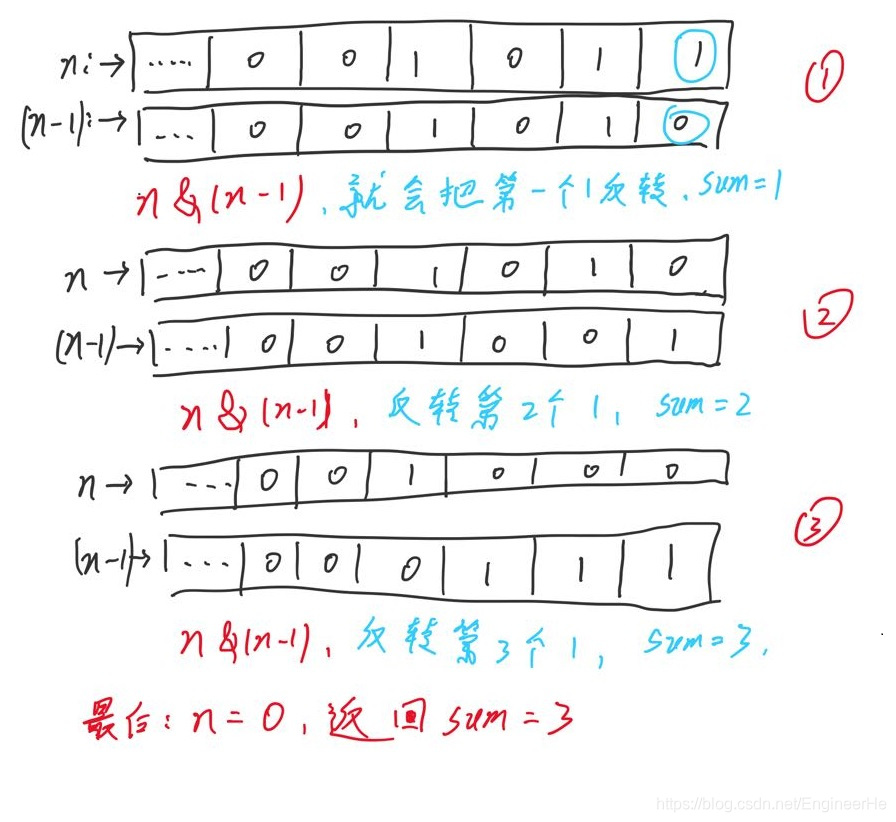 n: → ..... 0 0 1 0 1 1 ①
(n-1): → ... 0 0 1 0 1 0
n & (n-1), 就会把第一个1反转, sum=1
n → ---- 0 0 1 0 1 0
(n-1) → ..... 0 0 1 0 0 1 ②
n & (n-1), 反转第2个1, sum=2
n → ---- 0 0 1 0 0 0
(n-1) → ... 0 0 0 1 1 1 ③
n & (n-1), 反转第3个1, sum=3,
最后: n=0, 返回 sum=3
https://blog.csdn.net/EngineerHe